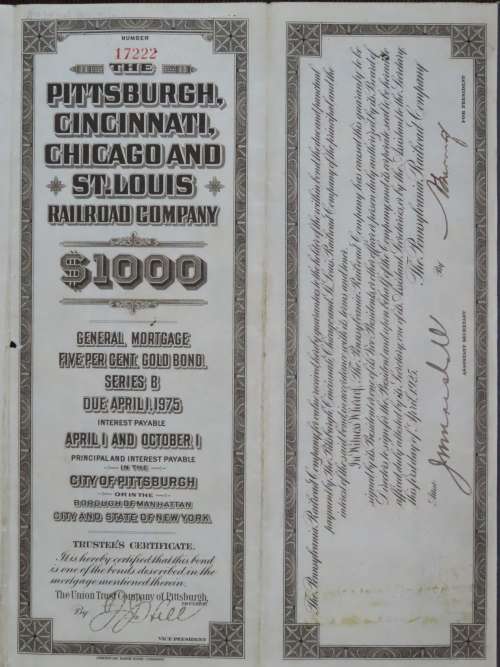 NUMBER
17222
THE
PITTSBURGH,
CINCINNATI,
CHICAGO AND
ST. LOUIS
RAILROAD COMPANY
$1000
GENERAL MORTGAGE
FIVE PER CENT. GOLD BOND.
SERIES B
DUE APRIL 1, 1975
INTEREST PAYABLE
APRIL 1 AND OCTOBER 1
PRINCIPAL AND INTEREST PAYABLE
IN THE
CITY OF PITTSBURGH
OR IN THE
BOROUGH OF MANHATTAN
CITY AND STATE OF NEW YORK.
TRUSTEE'S CERTIFICATE.
It is hereby certified that this bond
is one of the bonds described in the
mortgage mentioned therein.
The Union Trust Company of Pittsburgh,
TRUSTEE
By
VICE PRESIDENT
AMERICAN BANK NOTE COMPANY
The Pennsylvania Railroad Company, for value received, hereby guarantees to the holder of the within bond the due and punctual
payment by The Pittsburgh, Cincinnati, Chicago and St. Louis Railroad Company of the principal and the
interest of the said bond in accordance with its terms and tenor.
In Witness Whereof, The Pennsylvania Railroad Company has caused this guaranty to be
signed by its President or one of its Vice Presidents, or other officer or person duly authorized by its Board of
Directors to sign for the President and upon behalf of the Company, and its corporate seal to be hereunto
affixed, duly attested by its Secretary, one of its Assistant Secretaries, or by the Assistant to the Secretary,
this first day of April, 1925.
The Pennsylvania Railroad Company
Attest
By
ASSISTANT SECRETARY
FOR PRESIDENT